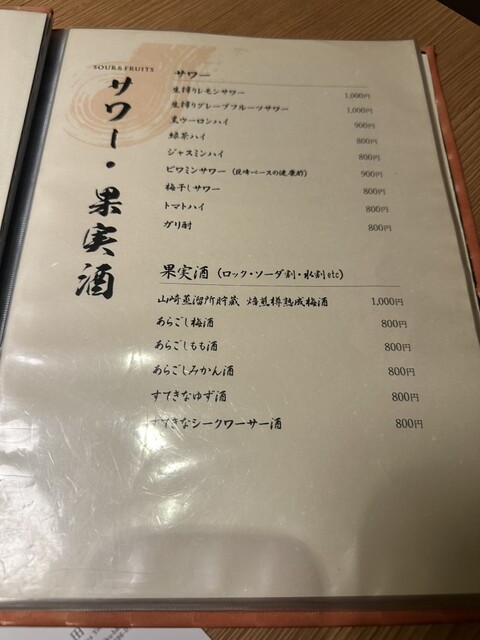 SOUR&FRUITS
サワー・果実酒
サワー
生搾りレモンサワー 1,000円
生搾りグレープフルーツサワー 1,000円
黒ウーロンハイ 900円
緑茶ハイ 800円
ジャスミンハイ 800円
ビワミンサワー（巨峰ベースの健康酢） 900円
梅干しサワー 800円
トマトハイ 800円
ガリ酎 800円
果実酒（ロック・ソーダ割・水割etc）
山崎蒸溜所貯蔵 焙煎樽熟成梅酒 1,000円
あらごし梅酒 800円
あらごしもも酒 800円
あらごしみかん酒 800円
すてきなゆず酒 800円
すてきなシークワーサー酒 800円